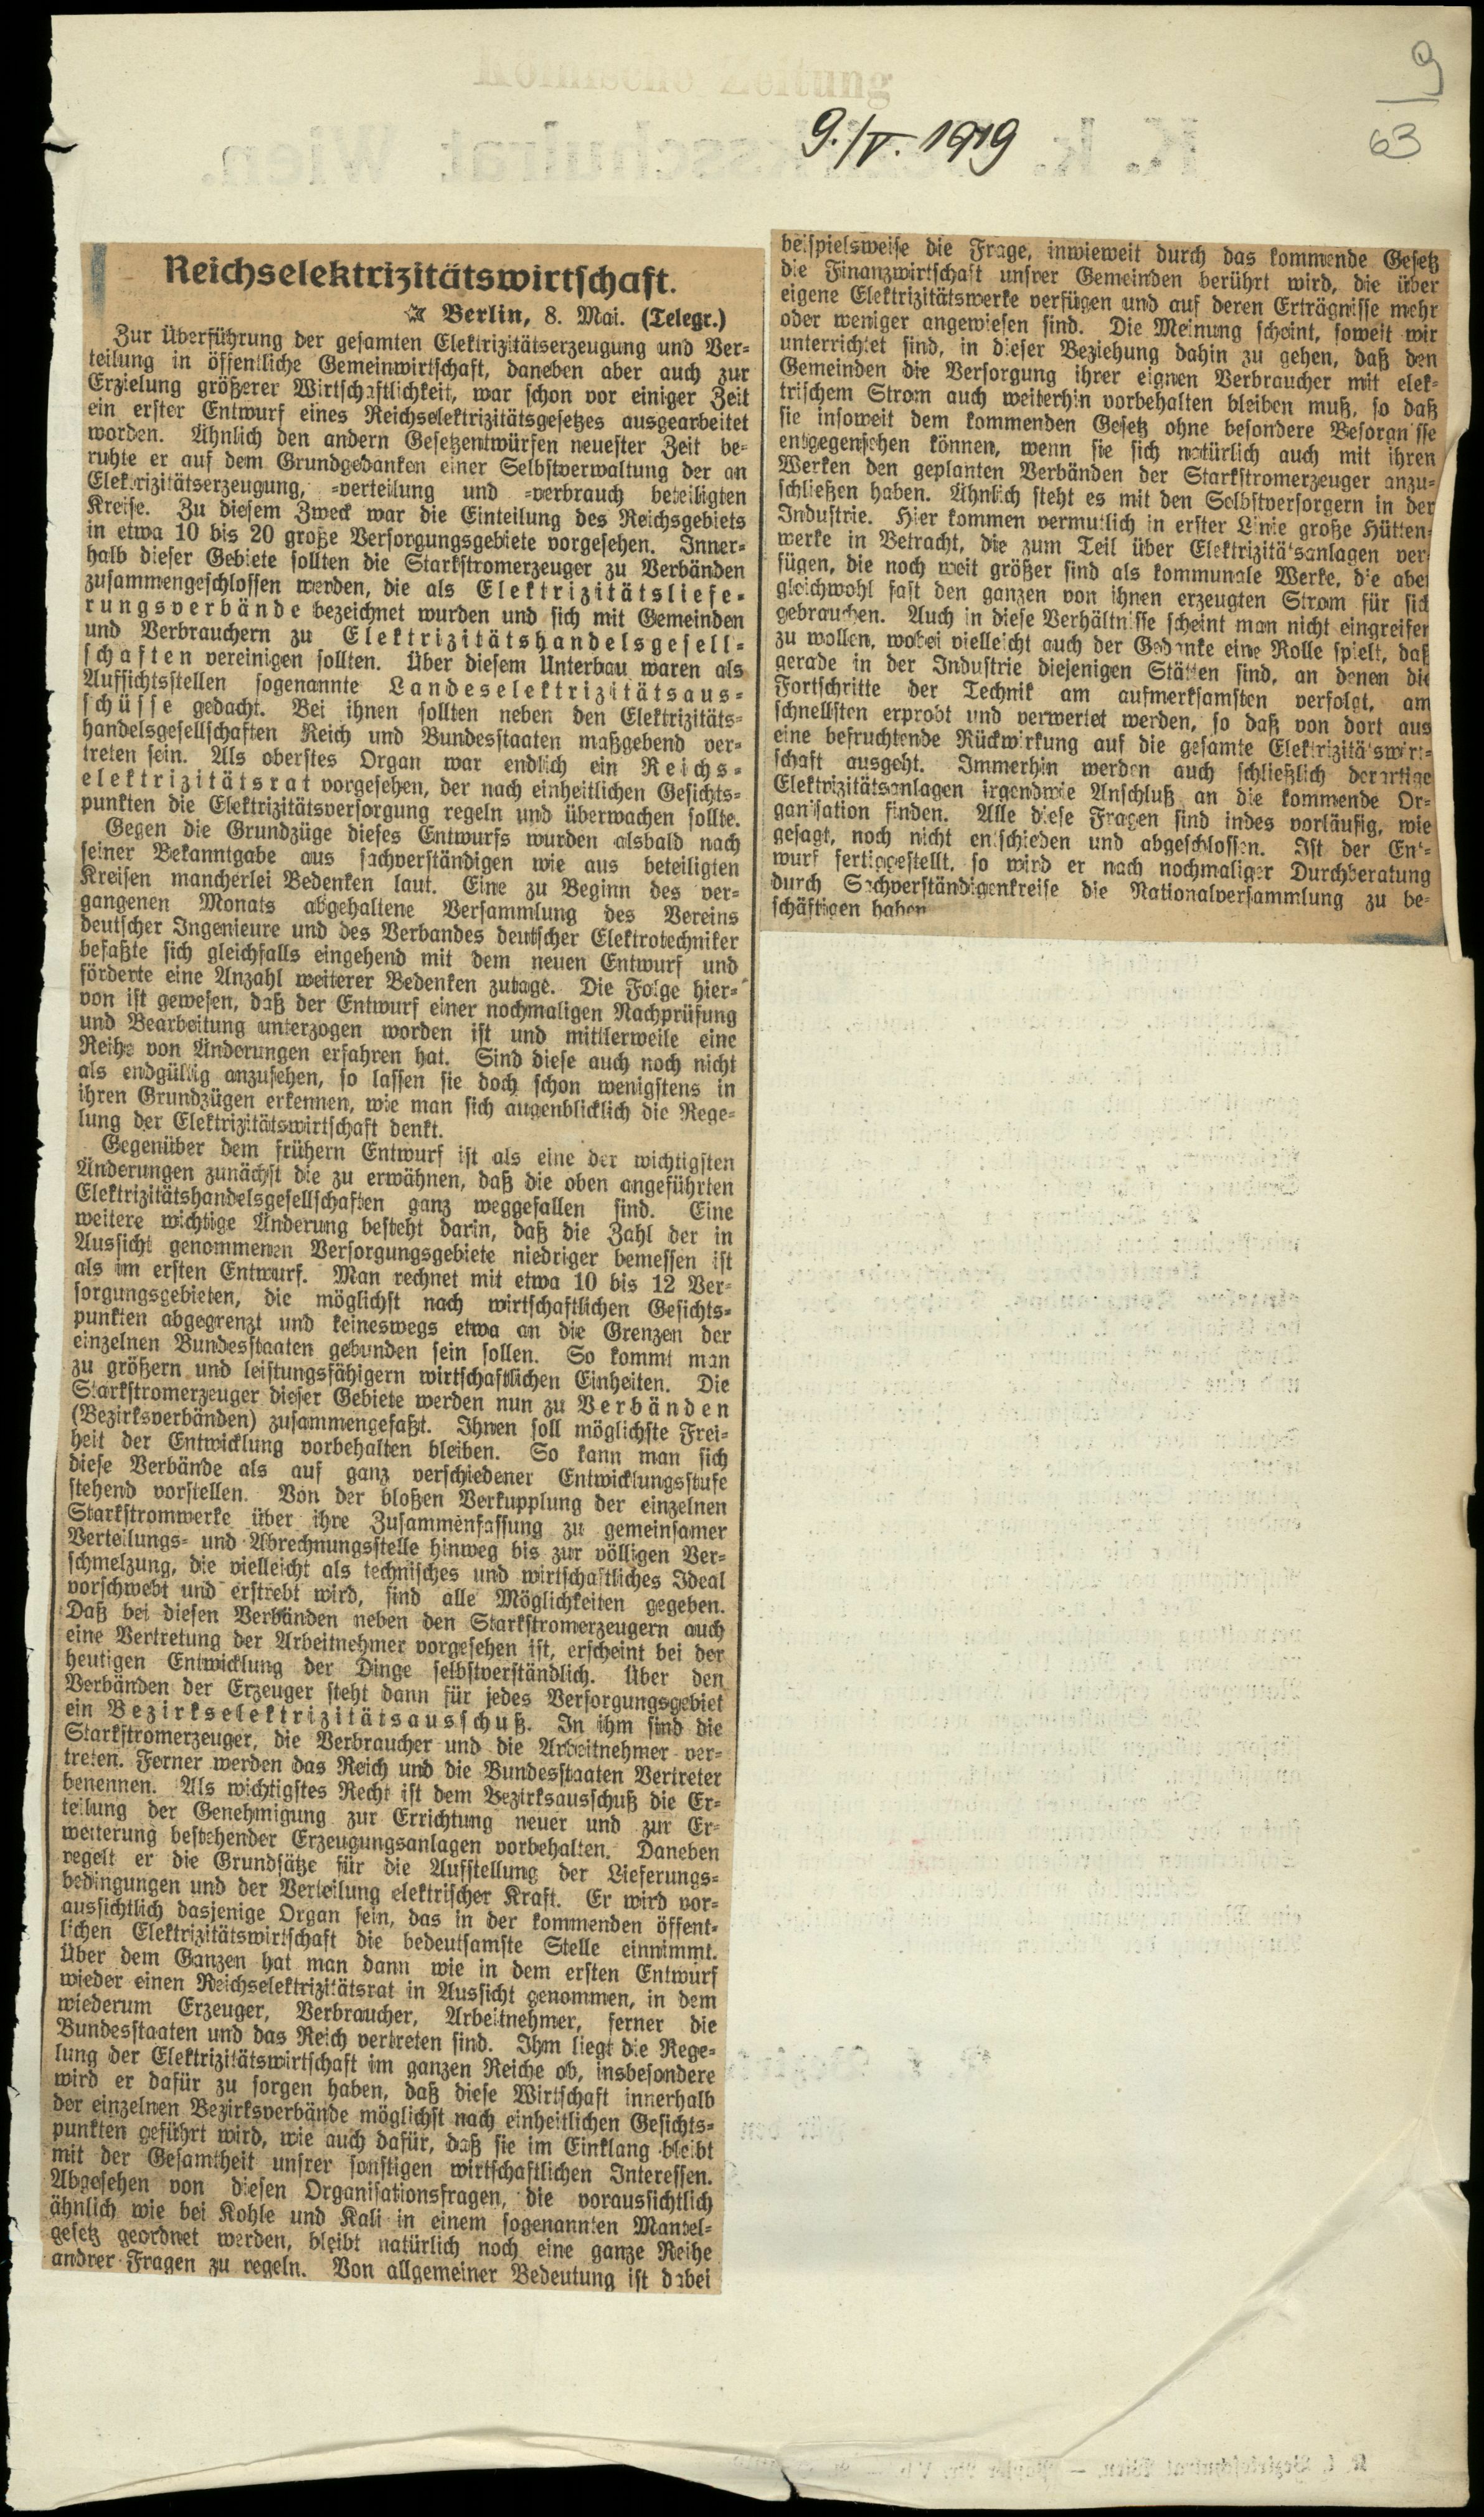 Kölnische Zeitung
9
63
9./V. 1919
Reichselektrizitätswirtschaft.
Berlin, 8. Mai. (Telegr.)
Zur Überführung der gesamten Elektrizitätserzeugung und Ver-
teilung in öffentliche Gemeinwirtschaft, daneben aber auch zur
Erzielung größerer Wirtschaftlichkeit, war schon vor einiger Zeit
ein erster Entwurf eines Reichselektrizitätsgesetzes ausgearbeitet
worden. Ähnlich den andern Gesetzentwürfen neuester Zeit be-
ruhte er auf dem Grundgedanken einer Selbstverwaltung der an
Elektrizitätserzeugung, -verteilung und -verbrauch beteiligten
Kreise. Zu diesem Zweck war die Einteilung des Reichsgebiets
in etwa 10 bis 20 große Versorgungsgebiete vorgesehen. Inner-
halb dieser Gebiete sollten die Starkstromerzeuger zu Verbänden
zusammengeschlossen werden, die als Elektrizitätsliefe-
rungsverbände bezeichnet wurden und sich mit Gemeinden
und Verbrauchern zu Elektrizitätshandelsgesell-
schaften vereinigen sollten. Über diesem Unterbau waren als
Aufsichtsstellen sogenannte Landeselektrizitätsaus-
schüsse gedacht. Bei ihnen sollten neben den Elektrizitäts-
handelsgesellschaften Reich und Bundesstaaten maßgebend ver-
treten sein. Als oberstes Organ war endlich ein Reichs-
elektrizitätsrat vorgesehen, der nach einheitlichen Gesichts-
punkten die Elektrizitätsversorgung regeln und überwachen sollte.
Gegen die Grundzüge dieses Entwurfs wurden alsbald nach
seiner Bekanntgabe aus sachverständigen wie aus beteiligten
Kreisen mancherlei Bedenken laut. Eine zu Beginn des ver-
gangenen Monats abgehaltene Versammlung des Vereins
deutscher Ingenieure und des Verbandes deutscher Elektrotechniker
befaßte sich gleichfalls eingehend mit dem neuen Entwurf und
förderte eine Anzahl weiterer Bedenken zutage. Die Folge hier-
von ist gewesen, daß der Entwurf einer nochmaligen Nachprüfung
und Bearbeitung unterzogen worden ist und mittlerweile eine
Reihe von Änderungen erfahren hat. Sind diese auch noch nicht
als endgültig anzusehen, so lassen sie doch schon wenigstens in
ihren Grundzügen erkennen, wie man sich augenblicklich die Rege-
lung der Elektrizitätswirtschaft denkt.
Gegenüber dem frühern Entwurf ist als eine der wichtigsten
Änderungen zunächst die zu erwähnen, daß die oben angeführten
Elektrizitätshandelsgesellschaften ganz weggefallen sind. Eine
weitere wichtige Änderung besteht darin, daß die Zahl der in
Aussicht genommenen Versorgungsgebiete niedriger bemessen ist
als im ersten Entwurf. Man rechnet mit etwa 10 bis 12 Ver-
sorgungsgebieten, die möglichst nach wirtschaftlichen Gesichts-
punkten abgegrenzt und keineswegs etwa an die Grenzen der
einzelnen Bundesstaaten gebunden sein sollen. So kommt man
zu größern und leistungsfähigern wirtschaftlichen Einheiten. Die
Starkstromerzeuger dieser Gebiete werden nun zu Verbänden
(Bezirksverbänden) zusammengefaßt. Ihnen soll möglichste Frei-
heit der Entwicklung vorbehalten bleiben. So kann man sich
diese Verbände als auf ganz verschiedener Entwicklungsstufe
stehend vorstellen. Von der bloßen Verkupplung der einzelnen
Starkstromwerke über ihre Zusammenfassung zu gemeinsamer
Verteilungs- und Abrechnungsstelle hinweg bis zur völligen Ver-
schmelzung, die vielleicht als technisches und wirtschaftliches Ideal
vorschwebt und erstrebt wird, sind alle Möglichkeiten gegeben.
Daß bei diesen Verbänden neben den Starkstromerzeugern auch
eine Vertretung der Arbeitnehmer vorgesehen ist, erscheint bei der
heutigen Entwicklung der Dinge selbstverständlich. Über den
Verbänden der Erzeuger steht dann für jedes Versorgungsgebiet
ein Bezirkselektrizitätsausschuß. In ihm sind die
Starkstromerzeuger, die Verbraucher und die Arbeitnehmer ver-
treten. Ferner werden das Reich und die Bundesstaaten Vertreter
benennen. Als wichtigstes Recht ist dem Bezirksausschuß die Er-
teilung der Genehmigung zur Errichtung neuer und zur Er-
weiterung bestehender Erzeugungsanlagen vorbehalten. Daneben
regelt er die Grundsätze für die Aufstellung der Lieferungs-
bedingungen und der Verteilung elektrischer Kraft. Er wird vor-
aussichtlich dasjenige Organ sein, das in der kommenden öffent-
lichen Elektrizitätswirtschaft die bedeutsamste Stelle einnimmt.
Über dem Ganzen hat man dann wie in dem ersten Entwurf
wieder einen Reichselektrizitätsrat in Aussicht genommen, in dem
wiederum Erzeuger, Verbraucher, Arbeitnehmer, ferner die
Bundesstaaten und das Reich vertreten sind. Ihm liegt die Rege-
lung der Elektrizitätswirtschaft im ganzen Reiche ob, insbesondere
wird er dafür zu sorgen haben, daß diese Wirtschaft innerhalb
der einzelnen Bezirksverbände möglichst nach einheitlichen Gesichts-
punkten geführt wird, wie auch dafür, daß sie im Einklang bleibt
mit der Gesamtheit unsrer sonstigen wirtschaftlichen Interessen.
Abgesehen von diesen Organisationsfragen, die voraussichtlich
ähnlich wie bei Kohle und Kali in einem sogenannten Mantel-
gesetz geordnet werden, bleibt natürlich noch eine ganze Reihe
andrer Fragen zu regeln. Von allgemeiner Bedeutung ist dabei
beispielsweise die Frage, inwieweit durch das kommende Gesetz
die Finanzwirtschaft unsrer Gemeinden berührt wird, die über
eigene Elektrizitätswerke verfügen und auf deren Erträgnisse mehr
oder weniger angewiesen sind. Die Meinung scheint, soweit wir
unterrichtet sind, in dieser Beziehung dahin zu gehen, daß den
Gemeinden die Versorgung ihrer eignen Verbraucher mit elek-
trischem Strom auch weiterhin vorbehalten bleiben muß, so daß
sie insoweit dem kommenden Gesetz ohne besondere Besorgnisse
entgegensehen können, wenn sie sich natürlich auch mit ihren
Werken den geplanten Verbänden der Starkstromerzeuger anzu-
schließen haben. Ähnlich steht es mit den Selbstversorgern in der
Industrie. Hier kommen vermutlich in erster Linie große Hütten-
werke in Betracht, die zum Teil über Elektrizitätsanlagen ver-
fügen, die noch weit größer sind als kommunale Werke, die aber
gleichwohl fast den ganzen von ihnen erzeugten Strom für sich
gebrauchen. Auch in diese Verhältnisse scheint man nicht eingreifen
zu wollen, wobei vielleicht auch der Gedanke eine Rolle spielt, daß
gerade in der Industrie diejenigen Stätten sind, an denen die
Fortschritte der Technik am aufmerksamsten verfolgt, am
schnellsten erprobt und verwertet werden, so daß von dort aus
eine befruchtende Rückwirkung auf die gesamte Elektrizitätswirt-
schaft ausgeht. Immerhin werden auch schließlich derartige
Elektrizitätsanlagen irgendwie Anschluß an die kommende Or-
ganisation finden. Alle diese Fragen sind indes vorläufig, wie
gesagt, noch nicht entschieden und abgeschlossen. Ist der Ent-
wurf fertiggestellt, so wird er nach nochmaliger Durchberatung
durch Sachverständigenkreise die Nationalversammlung zu be-
schäftigen haben